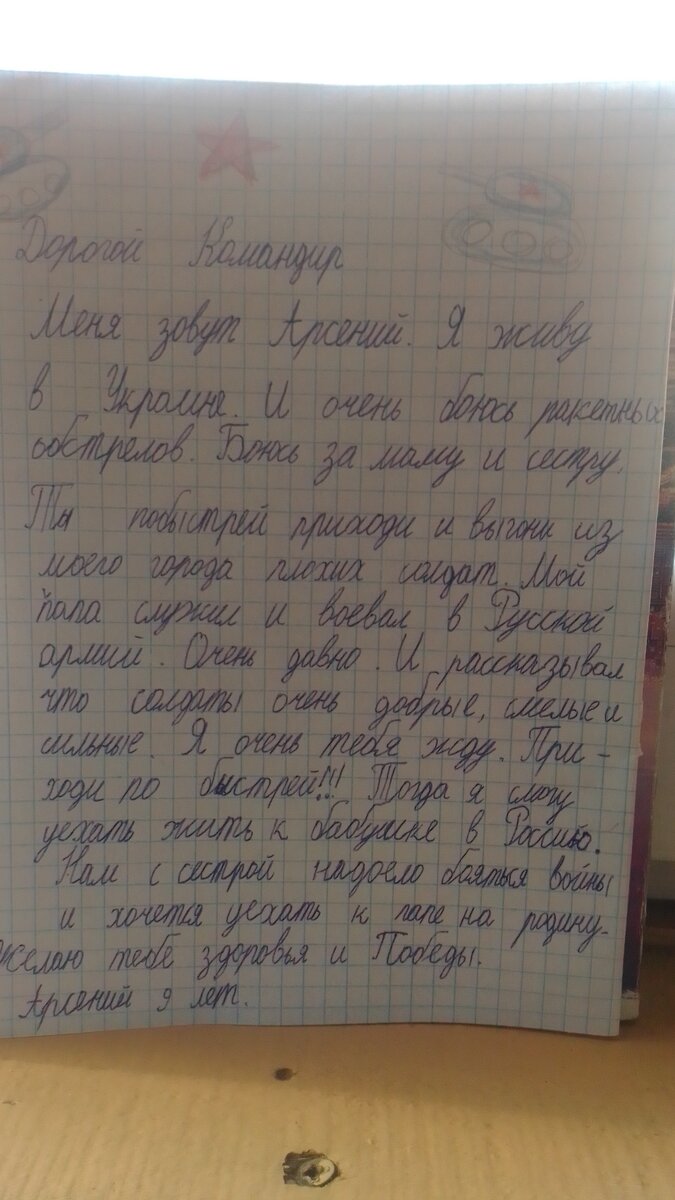 Дорогой Командир
Меня зовут Арсений. Я живу
в Украине. И очень боюсь ракетных
обстрелов. Боюсь за маму и сестру.
Ты побыстрей приходи и выгони из
моего города плохих солдат. Мой
папа служил и воевал в Русской
армий. Очень давно. И рассказывал
что солдаты очень добрые, смелые и
сильные. Я очень тебя жду. При-
ходи по быстрей!!! Тогда я смогу
уехать жить к бабушке в Россию.
Нам с сестрой надоело бояться войны
и хочется уехать к папе на родину.
Желаю тебе здоровья и Победы.
Арсений 9 лет.